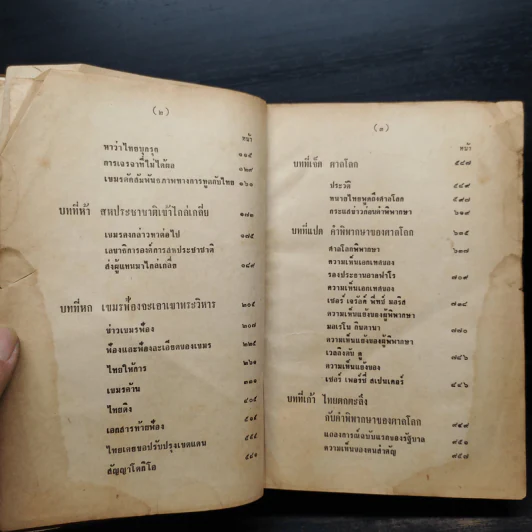 (๒)
หน้า
หาว่าไทยบุกรุก ๑๑๕
การเจรจาที่ไม่ได้ผล ๑๒๙
เขมรตัดสัมพันธภาพทางการทูตกับไทย ๑๖๑
บทที่ห้า สหประชาชาติเข้าไกล่เกลี่ย ๑๗๒
เขมรคงกล่าวหาต่อไป ๑๗๕
เลขาธิการองค์การสหประชาชาติ
ส่งผู้แทนมาไกล่เกลี่ย ๑๘๙
บทที่หก เขมรฟ้องจะเอาเขาพระวิหาร ๒๐๕
ข่าวเขมรฟ้อง ๒๐๗
ฟ้องและฟ้องละเอียดของเขมร ๒๒๕
ไทยให้การ ๒๖๑
เขมรค้าน ๓๑๑
ไทยติง ๔๐๕
เอกสารท้ายฟ้อง
ไทยเคยขอปรับปรุงเขตแดน
สัญญาโตกิโอ
(๓)
หน้า
บทที่เจ็ด ศาลโลก ๕๔๗
ประวัติ ๕๔๙
ทนายไทยพูดถึงศาลโลก ๕๙๓
กระแสข่าวก่อนคำพิพากษา ๖๑๑
บทที่แปด คำพิพากษาของศาลโลก ๖๑๕
ศาลโลกพิพากษา ๖๑๗
ความเห็นเอกเทศของ
รองประธานอาลฟาโร ๗๐๙
ความเห็นเอกเทศของ
เซอร์ เจรัลด์ ฟิทซ์ มอริส ๗๑๔
ความเห็นแย้งของผู้พิพากษา
มอเรโน กินตานา ๗๗๐
ความเห็นแย้งของผู้พิพากษา
เวลลิงตัน คู
ความเห็นแย้งของ
เซอร์ เพอร์ซี่ สเปนเดอร์
บทที่เก้า ไทยตกตะลึง
กับคำพิพากษาของศาลโลก ๙๔๙
แถลงการณ์ฉบับแรกของรัฐบาล ๙๕๑
ความเห็นของคนสำคัญ ๙๕๗